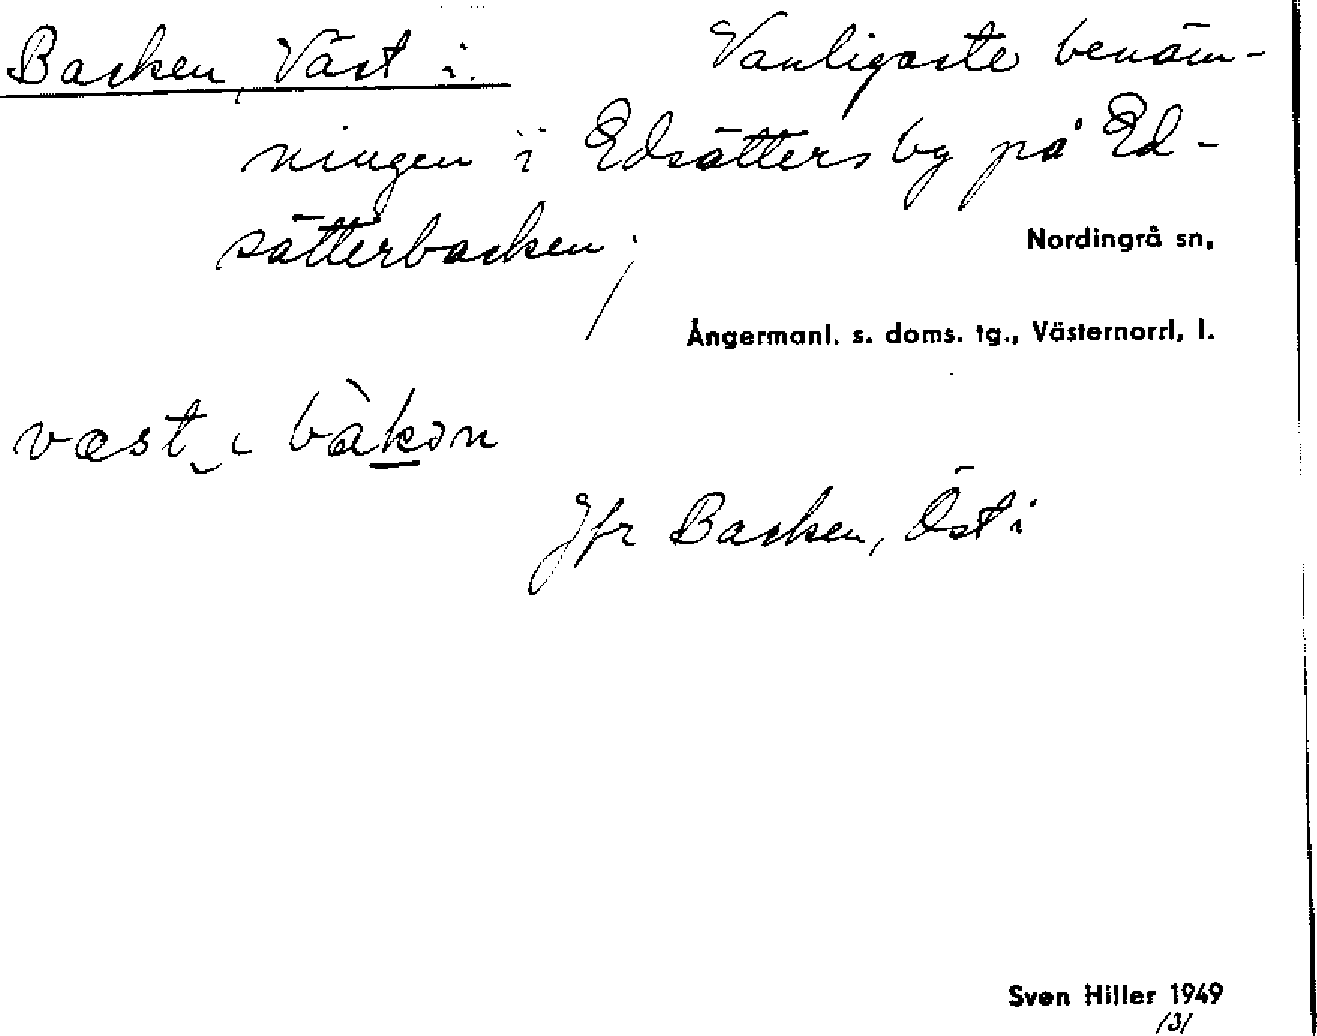 Backen, Väst i. Vanligaste benäm-
ningen i Edsätters by på Ed-
sätterbacken;
Nordingrå sn,
Ångermanl. s. doms. tg., Västernorrl. l.
væst i bàkən
Jfr Backen, Öst i
Sven Hiller 1949
/3/